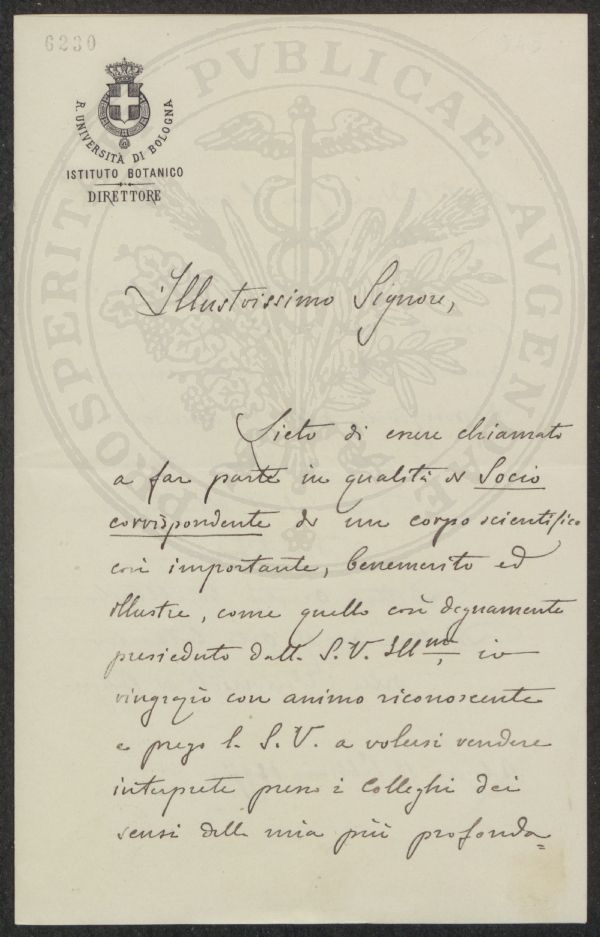 6230
R. UNIVERSITÀ DI BOLOGNA
ISTITUTO BOTANICO
DIRETTORE
PROSPERITATI PVBLICAE AVGENDAE
Illustrissimo Signore,
Lieto di essere chiamato
a far parte in qualità di Socio
corrispondente di un corpo scientifico
così importante, benemerito ed
illustre, come quello così degnamente
presieduto dall. S. V. Illma, io
ringrazio con animo riconoscente
e prego l. S. V. a volersi rendere
interprete presso i Colleghi dei
sensi della mia più profonda=